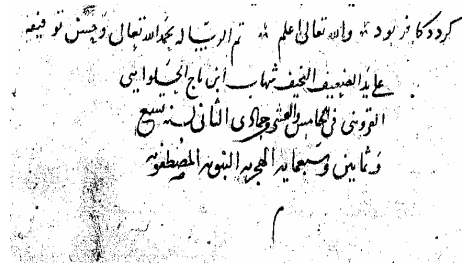 کردد کافر بود والله تعالی اعلم تم الرساله بحمدالله تعالی و حسن توفیقه
علی ید الضعیف النحیف شهاب ابن تاج
القزوینی فی الخامس والعشر جمادی الثانی لسنه تسع
و ثمانین و سبعمایه الهجریه النبویه المصطفویه
م